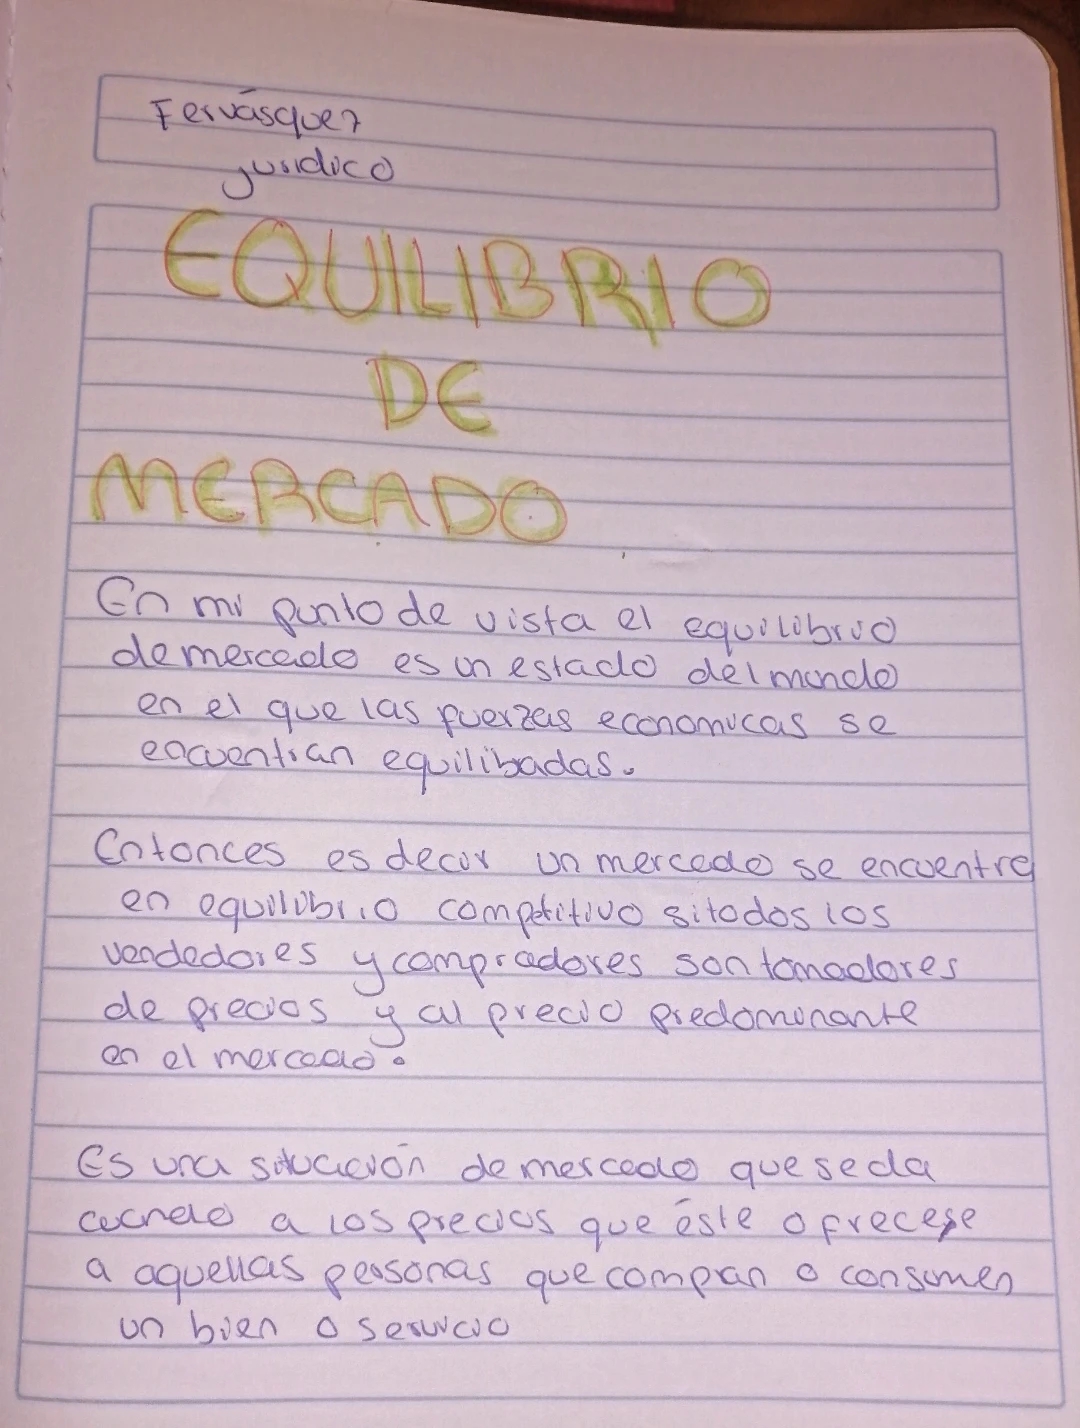 Fervásquez
jurídico
EQUILIBRIO
DE
MERCADO
En mi punto de vista el equilibrio
de mercado es un estado del mundo
en el que las fuerzas economicas se
encuentran equilibadas.
Entonces es decir un mercado se encuentra
en equilibrio competitivo si todos los
vendedores y compradores son tomadores
de precios y al precio predominante
en el mercado.
Es una situación de mercado que se da
cuando a los precios que éste ofrecese
a aquellas personas que compran o consumen
un bien o servicio